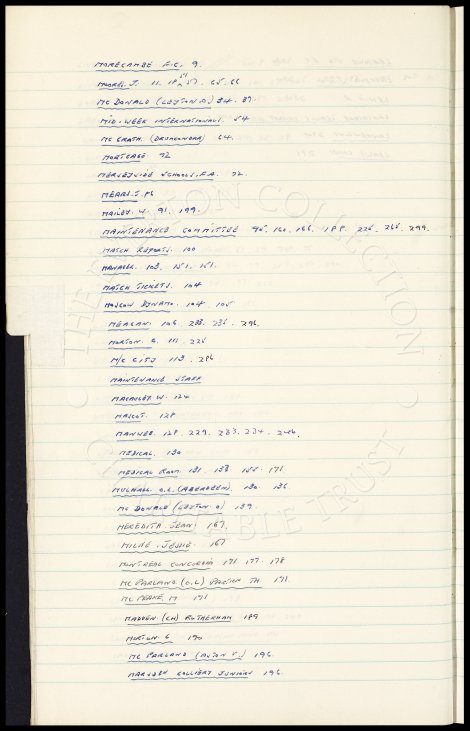 MORECAMBE F.C. 9.
MOORES. J. 11. 18. 51 57. 65. 66
MC DONALD (LEYTON O.) 54. 87
MID-WEEK INTERNATIONALS. 54
MC GRATH. (DRUMCONDRA) 64.
MORTGAGE 92
MERSEYSIDE SCHOOLS. F.A. 92.
MEARS. J. 96
MAILEY. W. 91. 199.
MAINTENANCE COMMITTEE 160. 166. 188. 299.
MATCH REPORTS. 100
MANAGER. 103. 151. 157.
MATCH TICKETS. 104
MOSCOW DYNAMO. 104 105
MEAGAN. 106. 296.
MORTON. G. 111. 225
M/C CITY 113. 286
MAINTENANCE STAFF
W. 124
MASCOT. 128
MANWEB. 128. 229. 233. 234.
MEDICAL. 130
MEDICAL ROOM. 131. 138 155. 171.
MULHALL. O.L. (ABERDEEN). 130. 136.
MC DONALD (LEYTON. O) 139.
MEREDITH. JEAN. 167.
MILNE. JESSIE. 167
MONTREAL CONCORDIA 171 177. 178
MC PARLAND (O.L) 171.
M 171
MADDEN. (CH) ROTHERHAM 189
MORTON. G 190
MC PARLAND (ASTON V.) 196.
MARSDEN COLLIERY JUNIORS 196.
THE EVERTON COLLECTION
CHARITABLE TRUST